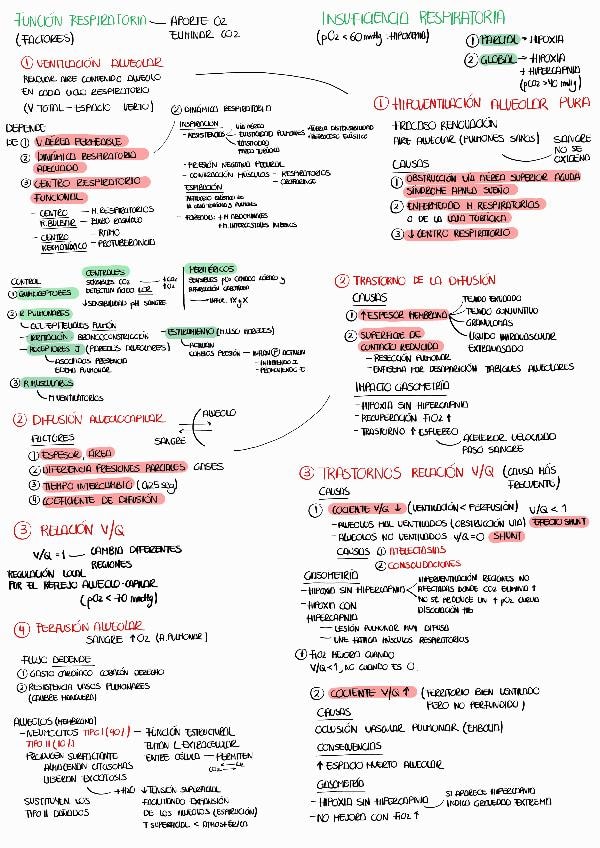 FUNCIÓN RESPIRATORIA — APORTE O2
(FACTORES) ELIMINAR CO2
① VENTILACIÓN ALVEOLAR
RENOVAR AIRE CONTENIDO ALVEOLO
EN CADA CICLO RESPIRATORIO
(V TOTAL - ESPACIO VERTO)
DEPENDE
DE ① V. AEREA PERMEABLE
② DINÁMICA RESPIRATORIA
ADECUADA
③ CENTRO RESPIRATORIO
FUNCIONAL
- CENTRO — M. RESPIRATORIOS
N. BULBAR
- CENTRO — RITMO
NEUMOTÁXICO - PROTUBERANCIA
② DINÁMICA RESPIRATORIA
INSPIRACIÓN
- RESISTENCIAS
VÍA AÉREA
ELASTICIDAD PULMONAR
PARED TORÁCICA
- PRESIÓN NEGATIVA PLEURAL
- CONTRACCIÓN MÚSCULOS - RESPIRATORIOS
- OROFARINGE
ESPIRACIÓN
- FORZADA: + M. ABDOMINALES
+ M. INTERCOSTALES INTERNOS
CONTROL
① QUIMIOCEPTORES
CENTRALES
SENSIBLES CO2
DETECTAN ÁCIDO LCR
↑CO2
↑O2
↓SENSIBILIDAD PH SANGRE
PERIFÉRICOS
② R. PULMONARES
- CÉL. EPITELIALES PULMÓN
- IRRITACIÓN BRONCOCONSTRICCIÓN
- RECEPTORES J (PAREDES ALVEOLARES)
- ASOCIADOS PRESENCIA
EDEMA PULMONAR
- ESTIRAMIENTO (M. LISO PAREDES)
- ACTIVAN
CAMBIOS PRESIÓN
③ R. MUSCULARES
M. VENTILATORIOS
② DIFUSIÓN ALVEOLOCAPILAR
ALVEOLO
SANGRE
FACTORES
① ESPESOR, ÁREA
② DIFERENCIA PRESIONES PARCIALES GASES
③ TIEMPO INTERCAMBIO (0,25 seg)
④ COEFICIENTE DE DIFUSIÓN
③ RELACIÓN V/Q
V/Q = 1 — CAMBIA DIFERENTES
REGIONES
REGULACIÓN LOCAL
POR EL REFLEJO ALVEOLO-CAPILAR
(pO2 < 70 mmHg)
④ PERFUSIÓN ALVEOLAR
SANGRE ↑O2 (A. PULMONAR)
FLUJO DEPENDE
① GASTO CARDÍACO CORAZÓN DERECHO
② RESISTENCIA VASOS PULMONARES
(CALIBRE MANGUERA)
ALVEOLOS (MEMBRANA)
- NEUMOCITOS TIPO I (90%) — FUNCIÓN ESTRUCTURAL
TIPO II (10%)
UNIÓN L. EXTRACELULAR
ENTRE CÉLULA — PERMITEN
PRODUCEN SURFACTANTE
ALMACENAN CITOSOMAS
LIBERAN EXOCITOSIS
+H2O ↓TENSIÓN SUPERFICIAL
FACILITANDO EXPANSIÓN
DE LOS ALVEOLOS (ESPIRACIÓN)
T SUPERFICIAL < ATMOSFÉRICA
SUSTITUYEN LOS
TIPO I DAÑADOS
INSUFICIENCIA RESPIRATORIA
(pO2 < 60 mmHg - HIPOXEMIA)
① PARCIAL → HIPOXIA
② GLOBAL → HIPOXIA
+ HIPERCAPNIA
(pCO2 > 40 mmHg)
① HIPOVENTILACIÓN ALVEOLAR PURA
FRACASO RENOVACIÓN
AIRE ALVEOLAR (PULMONES SANOS)
SANGRE
NO SE
OXIGENA
CAUSAS
① OBSTRUCCIÓN VÍA AEREA SUPERIOR AGUDA
SÍNDROME APNEA SUEÑO
② ENFERMEDAD M. RESPIRATORIOS
O DE LA CAJA TORÁCICA
③ ↓ CENTRO RESPIRATORIO
② TRASTORNO DE LA DIFUSIÓN
CAUSAS
① ↑ ESPESOR MEMBRANA
TEJIDO EXUDADO
TEJIDO CONJUNTIVO
GRANULOMAS
LÍQUIDO INTRAVASCULAR
EXTRAVASADO
② SUPERFICIE DE
CONTACTO REDUCIDA
- RESECCIÓN PULMONAR
- ENFISEMA POR DESAPARICIÓN TABIQUES ALVEOLARES
IMPACTO GASOMETRÍA
- HIPOXIA SIN HIPERCAPNIA
- RECUPERACIÓN FiO2 ↑
- TRASTORNO ↑ ESFUERZO
ACELERAR VELOCIDAD
PASO SANGRE
③ TRASTORNOS RELACIÓN V/Q (CAUSA MÁS
FRECUENTE)
CAUSAS
① COCIENTE V/Q ↓ (VENTILACIÓN < PERFUSIÓN) V/Q < 1
- ALVEOLOS MAL VENTILADOS (OBSTRUCCIÓN VÍA) EFECTO SHUNT
- ALVEOLOS NO VENTILADOS V/Q = 0 SHUNT
CAUSAS ① ATELECTASIAS
② CONSOLIDACIONES
GASOMETRÍA
- HIPOXIA SIN HIPERCAPNIA
HIPERVENTILACIÓN REGIONES NO
AFECTADAS DONDE CO2 ELIMINA ↑
NO SE PRODUCE UN ↑ pO2 CURVA
DISOCIACIÓN Hb
- HIPOXIA CON
HIPERCAPNIA
- LESIÓN PULMONAR MUY DIFUSA
- UNE FATIGA MÚSCULOS RESPIRATORIOS
↑ FiO2 MEJORA CUANDO
V/Q < 1, NO CUANDO ES 0
② COCIENTE V/Q ↑ (TERRITORIO BIEN VENTILADO
PERO NO PERFUNDIDO)
CAUSAS
OCLUSIÓN VASCULAR PULMONAR (EMBOLIA)
CONSECUENCIAS
↑ ESPACIO MUERTO ALVEOLAR
GASOMETRÍA
- HIPOXIA SIN HIPERCAPNIA
SI APARECE HIPERCAPNIA
INDICA GRAVEDAD EXTREMA
- NO MEJORA CON FiO2 ↑